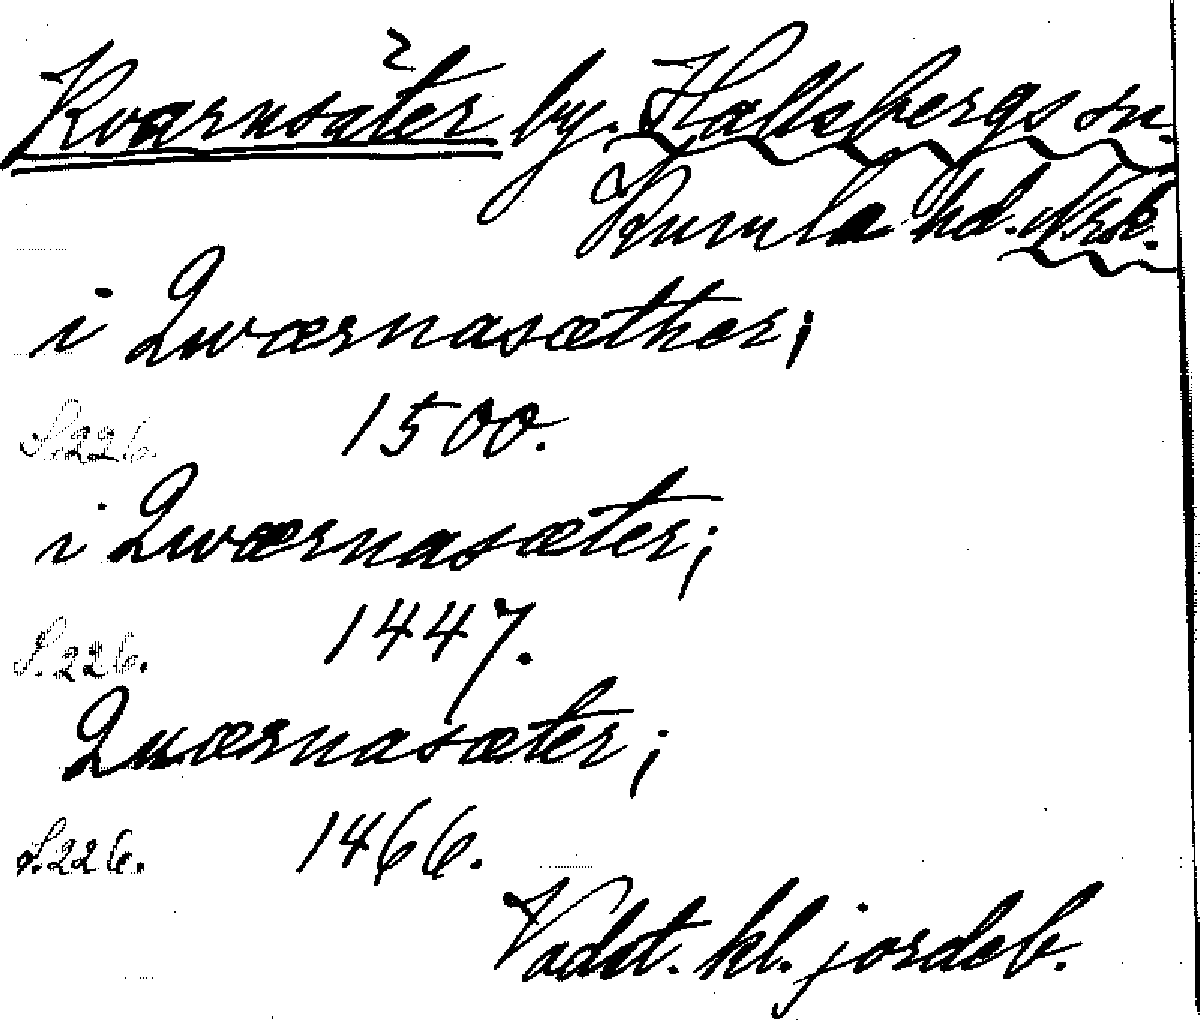 Kvarnsäter by. Hallsbergs sn.
Kumla hd. Nrk.
i Qwærnasæther;
S. 226. 1500.
i Qwærnasæter;
S. 226. 1447.
Qwærnasæter;
S. 226. 1466.
Vadst. kl. jordeb.